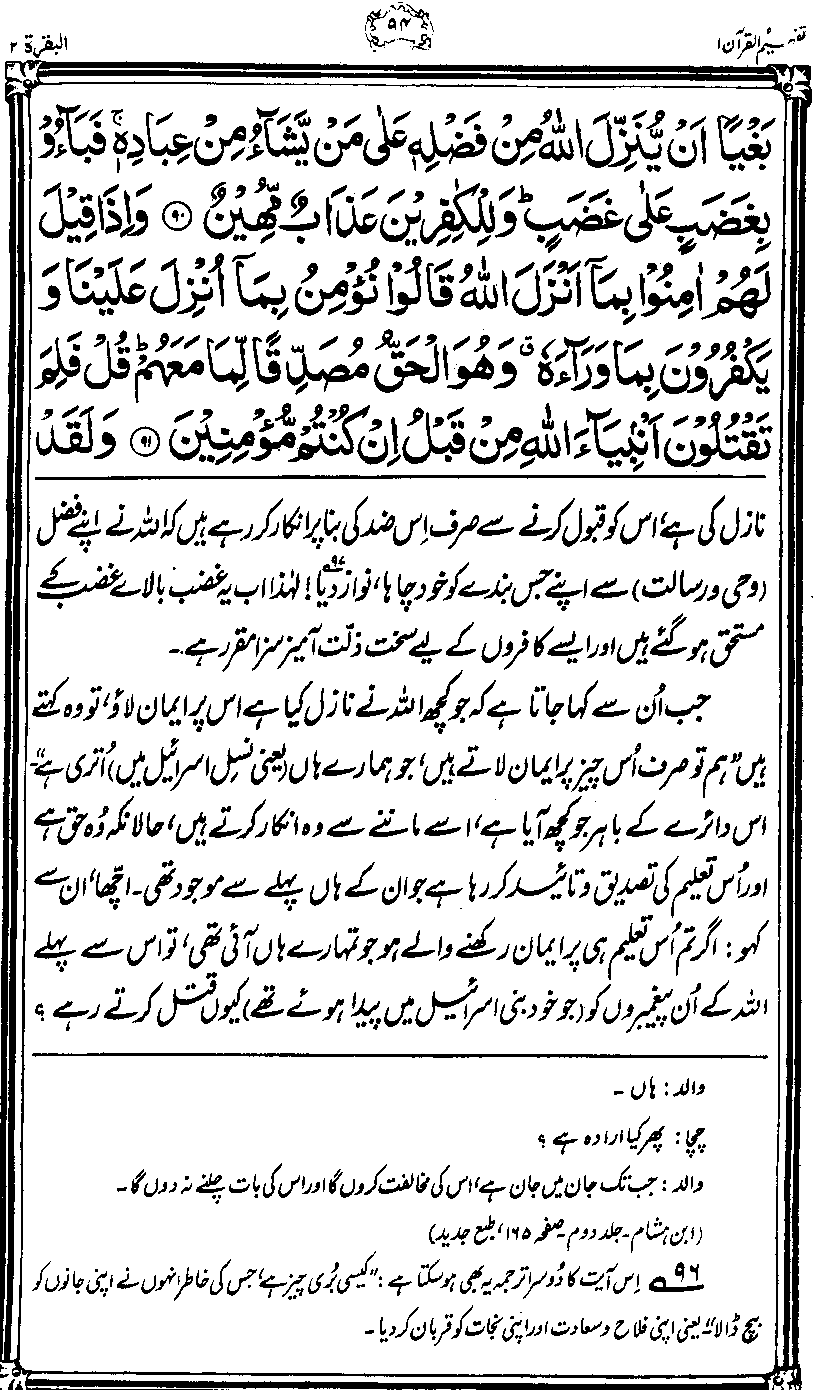 تفہیم القرآن ۱
۹۴
البقرة ۲
بَغْيًا اَنْ يُّنَزِّلَ اللّٰهُ مِنْ فَضْلِهٖ عَلٰى مَنْ يَّشَآءُ مِنْ عِبَادِهٖ ۚ فَبَآءُوْ
بِغَضَبٍ عَلٰى غَضَبٍ ؕ وَلِلْكٰفِرِيْنَ عَذَابٌ مُّهِيْنٌ ﴿۹۰﴾ وَاِذَا قِيْلَ
لَهُمْ اٰمِنُوْا بِمَآ اَنْزَلَ اللّٰهُ قَالُوْا نُؤْمِنُ بِمَآ اُنْزِلَ عَلَيْنَا وَ
يَكْفُرُوْنَ بِمَا وَرَآءَهٗ ۗ وَهُوَ الْحَقُّ مُصَدِّقًا لِّمَا مَعَهُمْ ؕ قُلْ فَلِمَ
تَقْتُلُوْنَ اَنْۢبِيَآءَ اللّٰهِ مِنْ قَبْلُ اِنْ كُنْتُمْ مُّؤْمِنِيْنَ ﴿۹۱﴾ وَلَقَدْ
نازل کی ہے، اس کو قبول کرنے سے صرف اِس ضد کی بنا پر انکار کر رہے ہیں کہ اللہ نے اپنے فضل
(وحی و رسالت) سے اپنے جس بندے کو خود چاہا، نواز دیا!۹۷ لہٰذا اب یہ غضب بالائے غضب کے
مستحق ہو گئے ہیں اور ایسے کافروں کے لیے سخت ذلّت آمیز سزا مقرر ہے۔
جب اُن سے کہا جاتا ہے کہ جو کچھ اللہ نے نازل کیا ہے اس پر ایمان لاؤ، تو وہ کہتے
ہیں ”ہم تو صرف اُس چیز پر ایمان لاتے ہیں، جو ہمارے ہاں (یعنی نسل اسرائیل میں) اُتری ہے“۔
اس دائرے کے باہر جو کچھ آیا ہے، اسے ماننے سے وہ انکار کرتے ہیں، حالانکہ وُہ حق ہے
اور اُس تعلیم کی تصدیق و تائید کر رہا ہے جو ان کے ہاں پہلے سے موجود تھی۔ اچّھا، ان سے
کہو: اگر تم اُس تعلیم ہی پر ایمان رکھنے والے ہو جو تمہارے ہاں آئی تھی، تو اس سے پہلے
اللہ کے اُن پیغمبروں کو (جو خود بنی اسرائیل میں پیدا ہوئے تھے) کیوں قتل کرتے رہے؟
والد: ہاں۔
چچا: پھر کیا ارادہ ہے؟
والد: جب تک جان میں جان ہے، اس کی مخالفت کروں گا اور اس کی بات چلنے نہ دوں گا۔
(ابن ہشام۔ جلد دوم۔ صفحہ ۱۶۵، طبع جدید)
۹۶ اِس آیت کا دُوسرا ترجمہ یہ بھی ہو سکتا ہے: ”کیسی بُری چیز ہے، جس کی خاطر انہوں نے اپنی جانوں کو
بیچ ڈالا“ یعنی اپنی فلاح و سعادت اور اپنی نجات کو قربان کر دیا۔